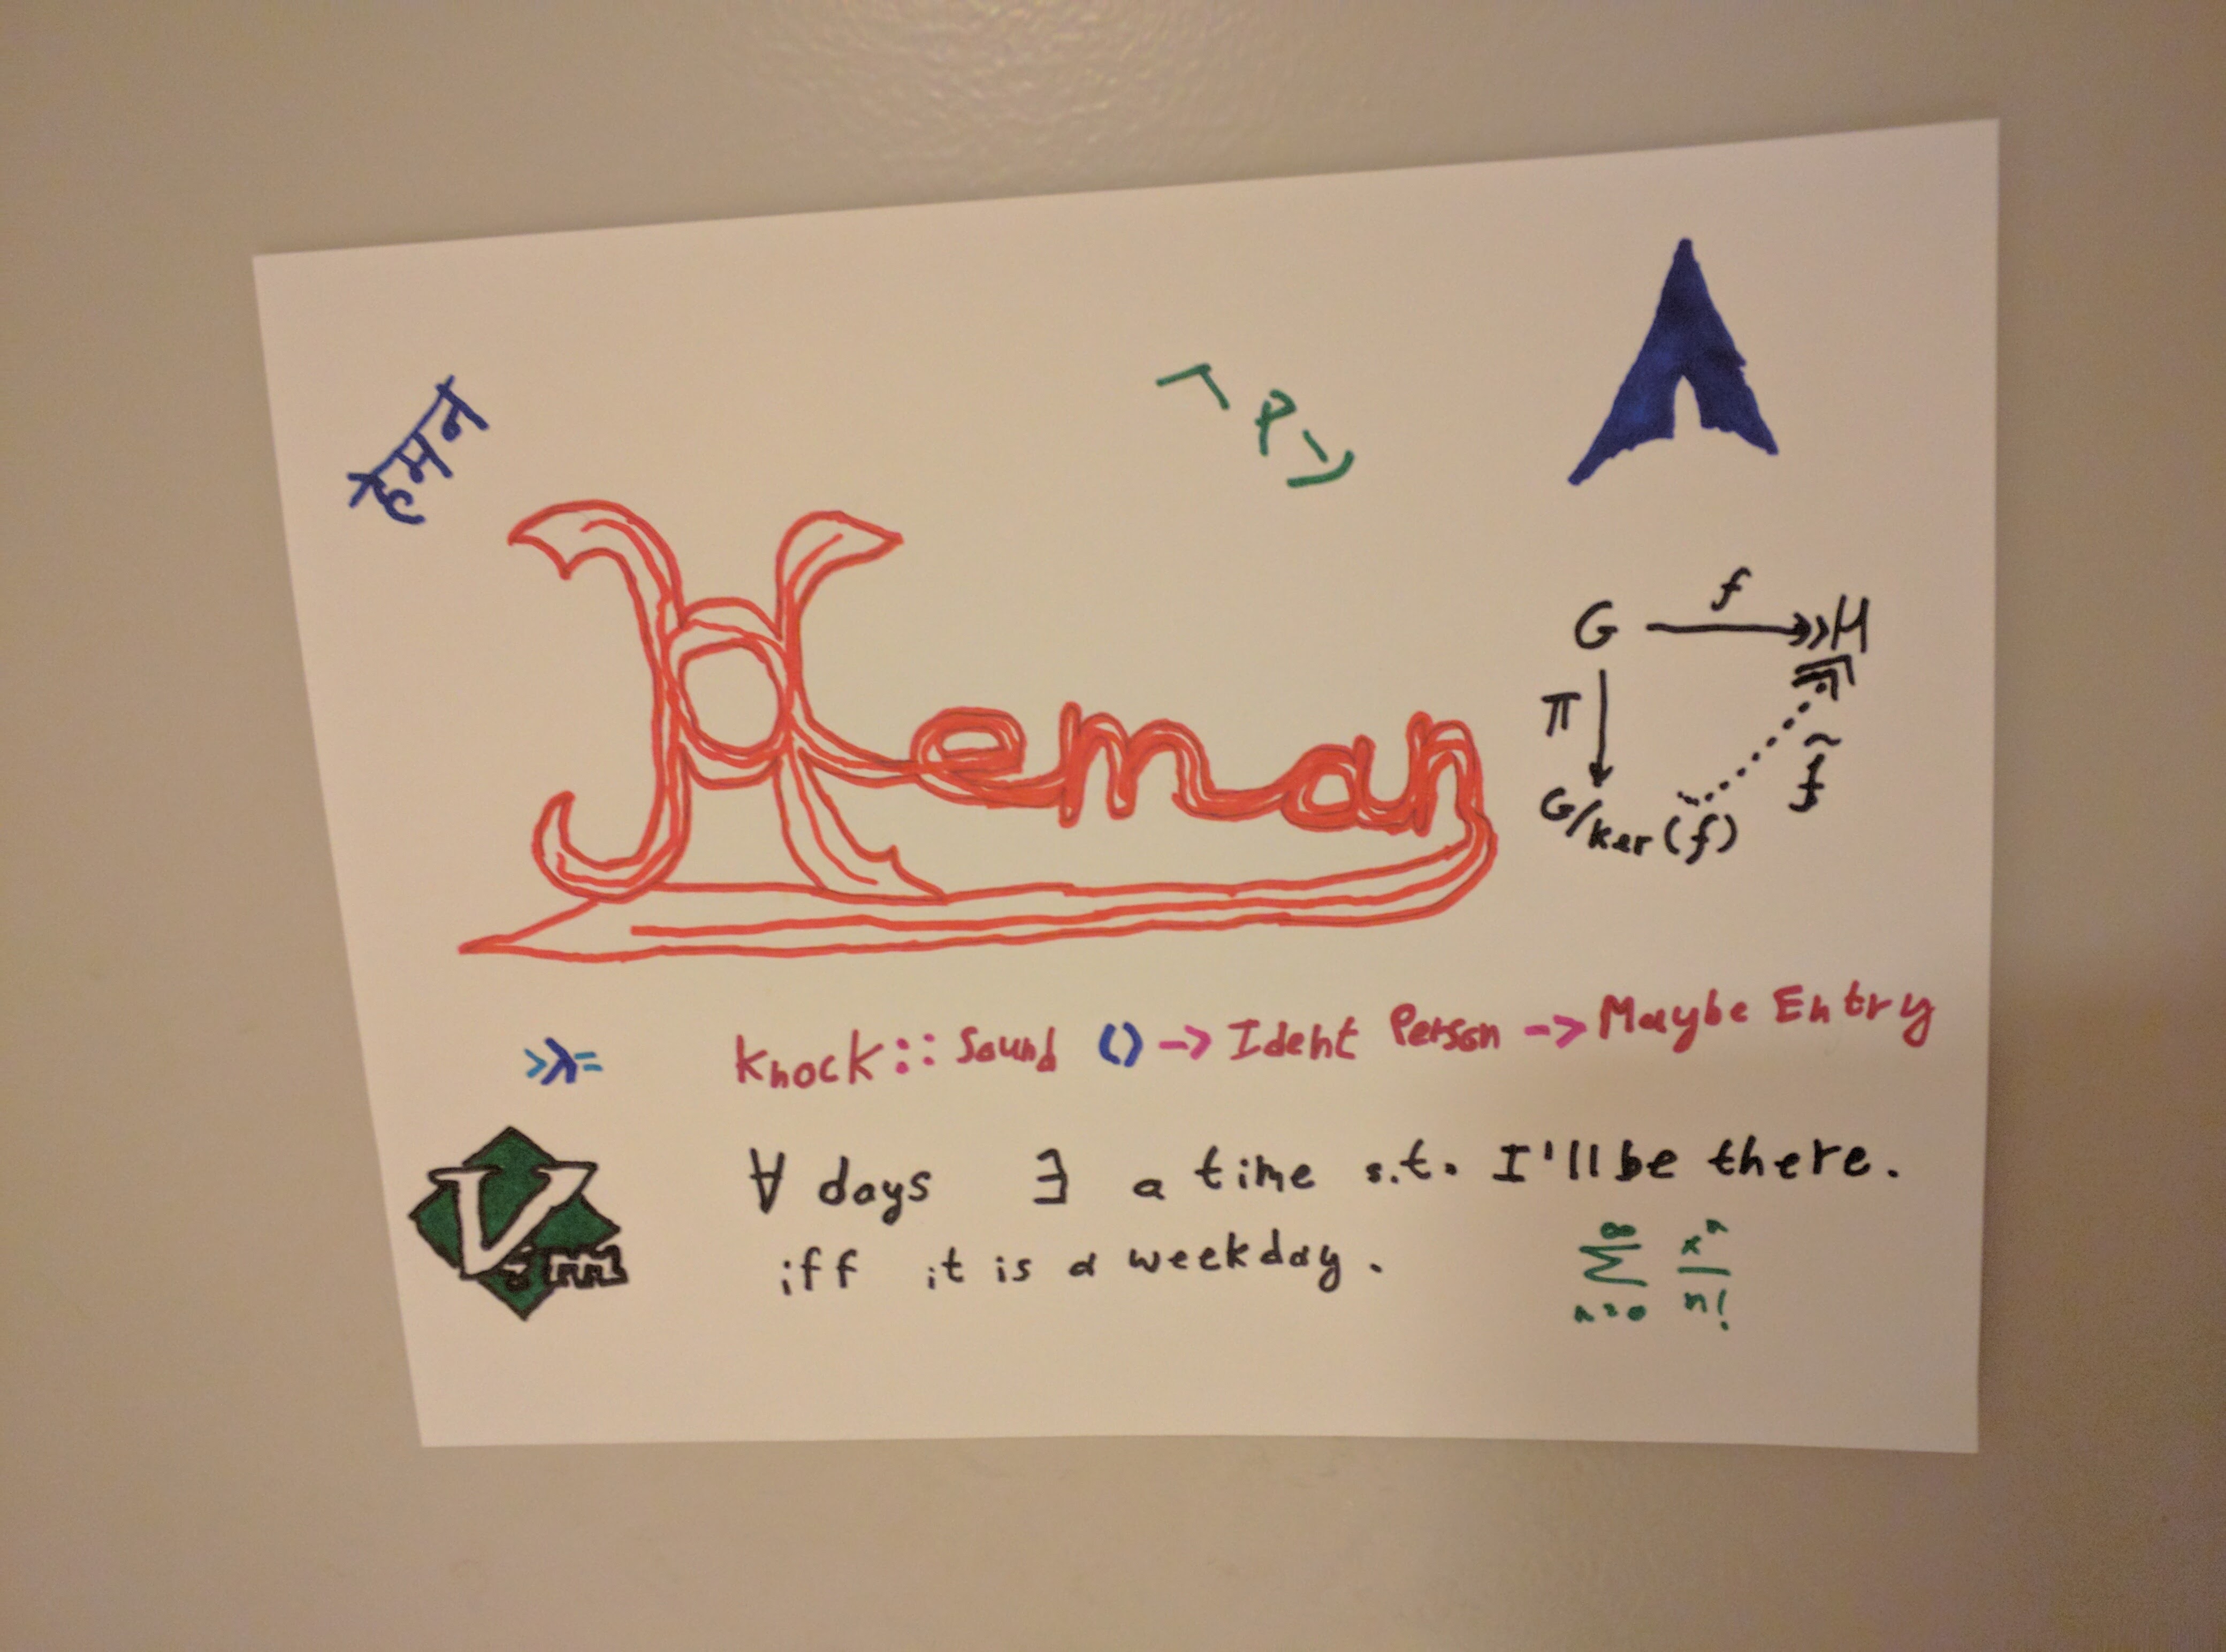 हेमन
Heman
G f H
π f̃
G/ker(f)
>λ= knock :: Sound () -> Ident Person -> Maybe Entry
Vim
∀ days ∃ a time s.t. I'll be there.
iff it is a weekday.
∞ xⁿ
Σ —
n=0 n!